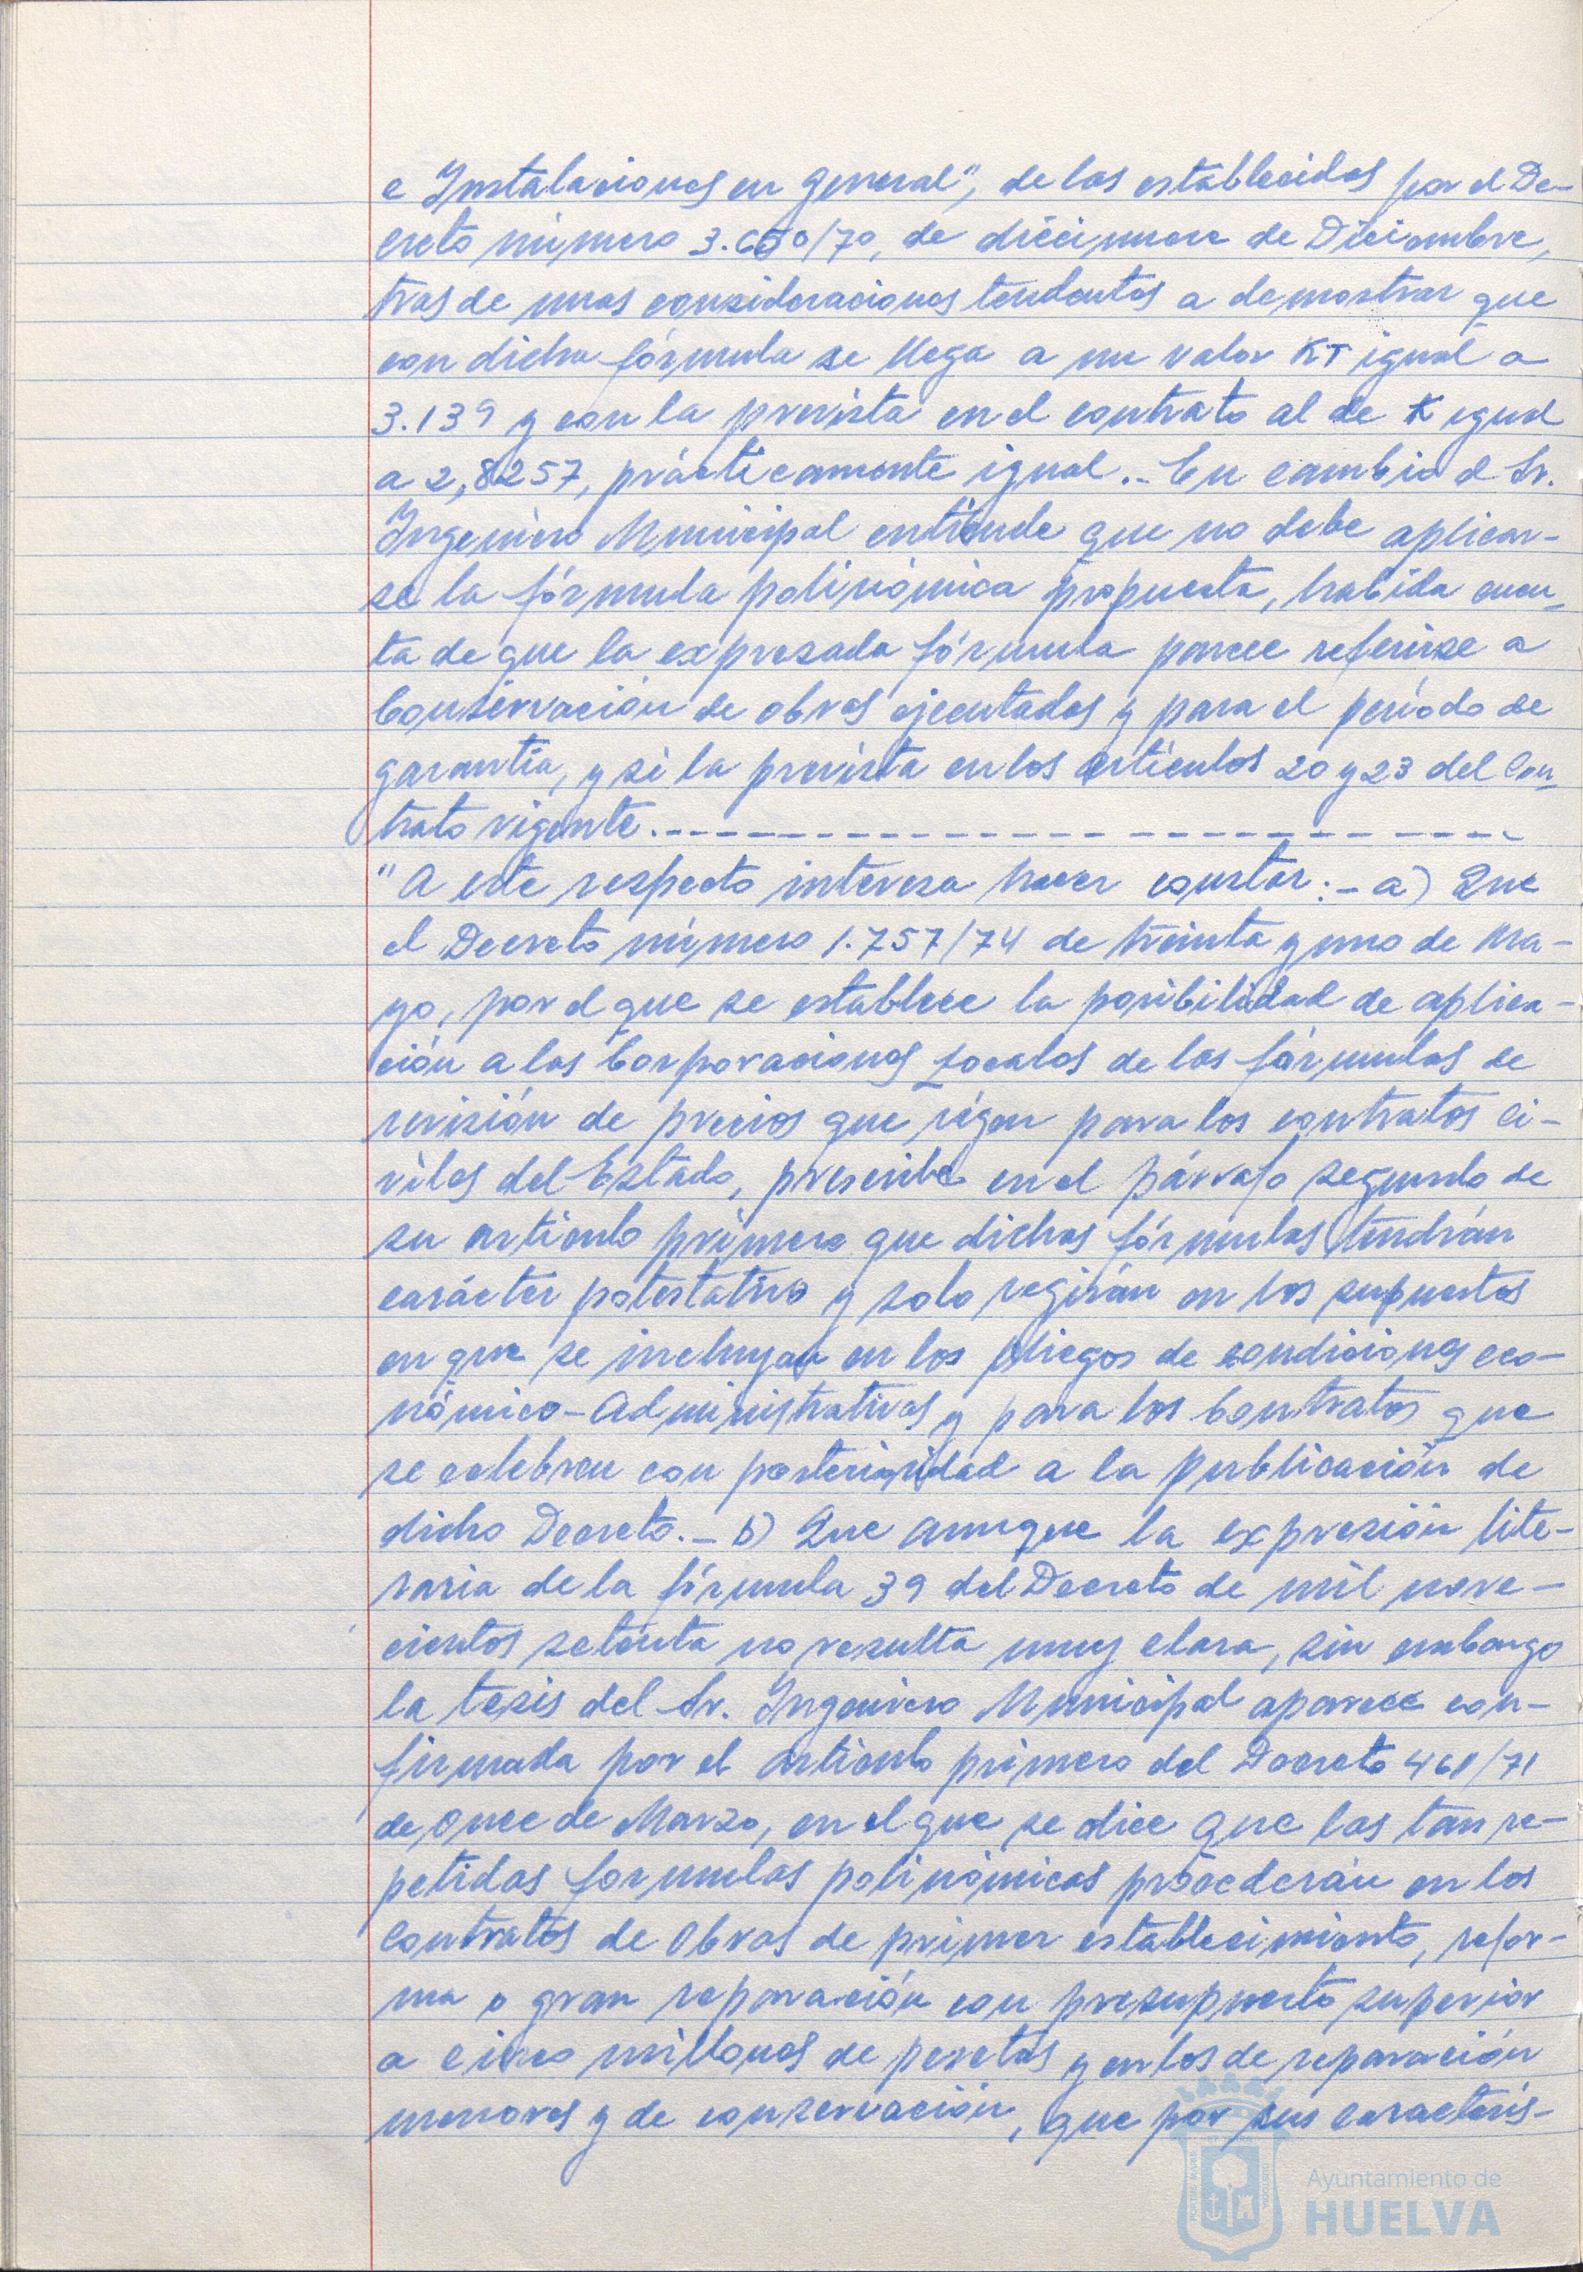 e Instalaciones en general", de las establecidas por el De-
creto número 3.650/70, de diécinueve de Diciembre,
tras de unas consideraciones tendentes a demostrar que
con dicha fórmula se llega a un valor KT igual a
3.139 y con la prevista en el contrato al de K igual
a 2,8257, prácticamente igual.- En cambio el Sr.
Ingeniero Municipal entiende que no debe aplicar-
se la fórmula polinómica propuesta, habida cuen-
ta de que la expresada fórmula parece referirse a
Conservación de obras ejecutadas y para el período de
garantía, y si la prevista en los artículos 20 y 23 del Con-
trato vigente.-
"A este respecto interesa hacer constar:- a) Que
el Decreto número 1.757/74 de treinta y uno de Ma-
yo, por el que se establece la posibilidad de aplica-
ción a las Corporaciones Locales de las fórmulas de
revisión de precios que rigen para los contratos ci-
viles del Estado, prescribe en el párrafo segundo de
su artículo primero que dichas fórmulas tendrán
carácter potestativo y solo regirán en los supuestos
en que se incluyan en los pliegos de condiciones eco-
nómico-Administrativas y para los Contratos que
se celebren con posterioridad a la publicación de
dicho Decreto.- b) Que aunque la expresión lite-
raria de la fórmula 39 del Decreto de mil nove-
cientos setenta no resulta muy clara, sin embargo
la tesis del Sr. Ingeniero Municipal aparece con-
firmada por el artículo primero del Decreto 461/71
de once de Marzo, en el que se dice que las tan re-
petidas formulas polinómicas procederán en los
Contratos de Obras de primer establecimiento, refor-
ma o gran reparación con presupuesto superior
a cinco millones de pesetas y en los de reparación
menores y de conservación, que por sus caracterís-
Ayuntamiento de
HUELVA